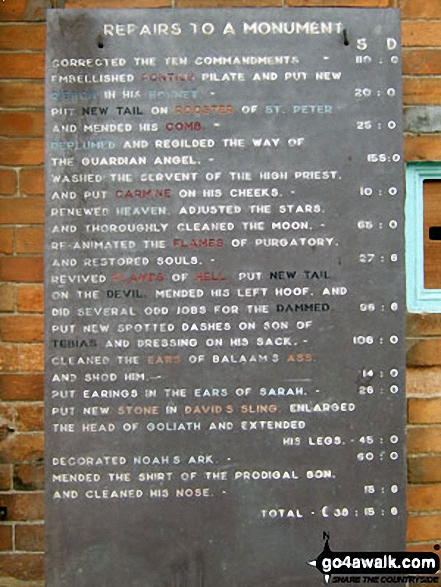 REPAIRS TO A MONUMENT
S D
CORRECTED THE TEN COMMANDMENTS - 110 : 6
EMBELLISHED PONTIUS PILATE AND PUT NEW
RIBBON IN HIS BONNET - 20 : 0
PUT NEW TAIL ON ROOSTER OF ST. PETER
AND MENDED HIS COMB. - 25 : 0
REPLUMED AND REGILDED THE WAY OF
THE GUARDIAN ANGEL. - 155:0
WASHED THE SERVENT OF THE HIGH PRIEST,
AND PUT CARMINE ON HIS CHEEKS. - 10 : 0
RENEWED HEAVEN, ADJUSTED THE STARS,
AND THOROUGHLY CLEANED THE MOON. - 65 : 0
RE-ANIMATED THE FLAMES OF PURGATORY,
AND RESTORED SOULS. - 27 : 6
REVIVED FLAMES OF HELL, PUT NEW TAIL
ON THE DEVIL, MENDED HIS LEFT HOOF, AND
DID SEVERAL ODD JOBS FOR THE DAMMED. 96 : 6
PUT NEW SPOTTED DASHES ON SON OF
TEBIAS AND DRESSING ON HIS SACK. - 106 : 0
CLEANED THE EARS OF BALAAM'S ASS.
AND SHOD HIM. - 14 : 0
PUT EARINGS IN THE EARS OF SARAH. - 26 : 0
PUT NEW STONE IN DAVID'S SLING, ENLARGED
THE HEAD OF GOLIATH AND EXTENDED
HIS LEGS. - 45 : 0
DECORATED NOAH'S ARK. - 60 : 0
MENDED THE SHIRT OF THE PRODIGAL SON,
AND CLEANED HIS NOSE. - 15 : 6
TOTAL - £ 38 : 15 : 6
N
go4awalk.com®
SHARE THE COUNTRYSIDE